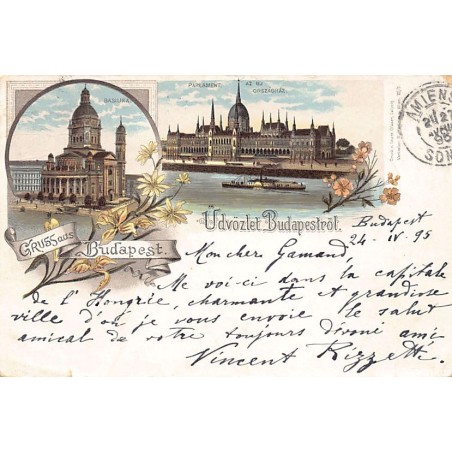 BASILIKA
PARLAMENT.
AZ ÚJ
ORSZÁGHÁZ.
AMIENS
SOM
GRUSS aus
Budapest.
Üdvözlet Budapestről.
Budapest
24-IV-95
Mon cher Gamand,
Me voici dans la capitale
de l'Hongrie, charmante et grandiose
ville d'où je vous envoie le salut
amical de votre toujours dévoué ami
Vincent Rizzetti.